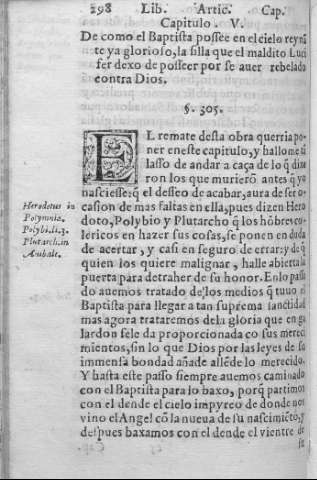 298 Lib. Artic. Cap.
Capitulo. V.
De como el Baptista possée en el cielo reynã
te ya glorioso, la silla que el maldito Luci
fer dexo de posseer por se auer rebelado
contra Dios.
§. 305.
EL remate desta obra querria po-
ner en este capitulo, y hallome tã
lasso de andar a caça de lo q̃ dixe
ron los que murierõ antes q̃ yo
nasciesse: q̃ el desseo de acabar, aura de ser o-
casion de mas faltas en ella, pues dizen Hero
doto, Polybio y Plutarcho q̃ los hõbres co-
lericos en hazer sus cosas, se ponen en duda
de acertar, y casi en seguro de errar: y de q̃
quien los quiere malignar, halle abierta la
puerta para detraher de su honor. En lo passa
do auemos tratado de los medios q̃ tuuo el
Baptista para llegar a tan suprema sanctidad
mas agora trataremos de la gloria que en ga
lardon se le da proporcionada co sus mereci
mientos, sin lo que Dios por las leyes de su
immensa bondad añade allẽde lo merecido.
Y hasta este passo siempre auemos caminado
con el Baptista para lo baxo, porq̃ partimos
con el dende el cielo impyreo de donde nos
vino el Angel cõ la nueua de su nascimiẽto, y
despues baxamos con el dende el vientre de
se
Herodotus in
Polymnia.
Polybi. li. 3.
Plutarch. in
Anibale.